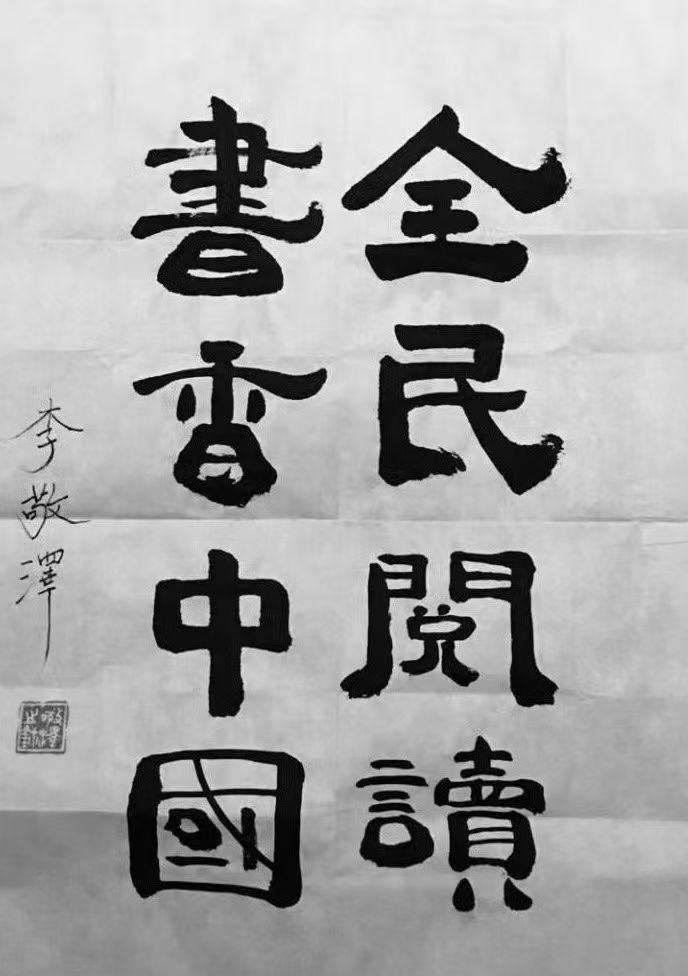 全民閱讀
書香中國
李敬澤